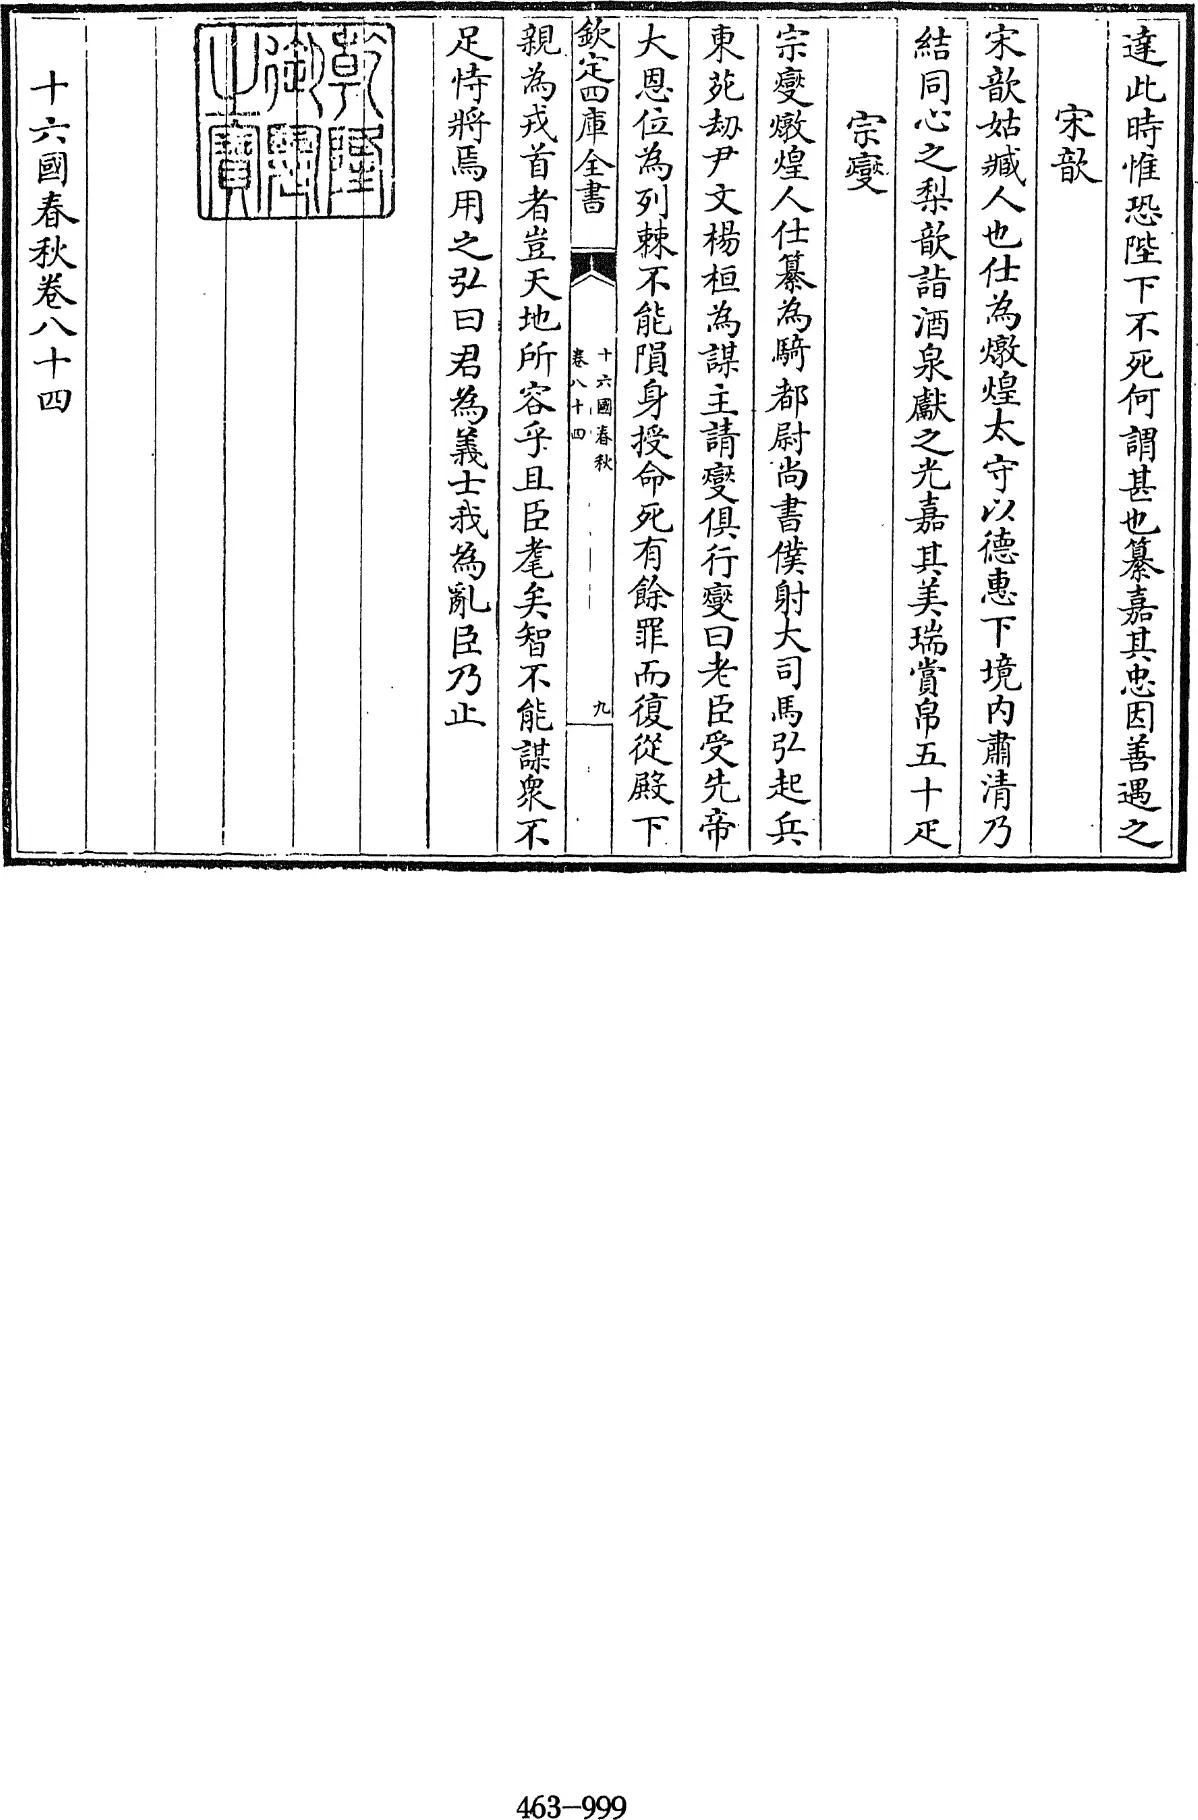 達此時惟恐陛下不死何謂甚也纂嘉其忠因善遇之
宋歆
宋歆姑臧人也仕為燉煌太守以德惠下境内肅清乃
結同心之梨歆詣酒泉獻之光嘉其美瑞賞帛五十疋
宗燮
宗燮燉煌人仕纂為騎都尉尚書僕射大司馬弘起兵
東苑劫尹文楊桓為謀主請燮俱行燮曰老臣受先帝
大恩位為列棘不能隕身授命死有餘罪而復從殿下
欽定四庫全書
十六國春秋
卷八十四
九
親為戎首者豈天地所容乎且臣耄矣智不能謀衆不
足恃將焉用之弘曰君為義士我為亂臣乃止
乾隆
御覽
之寶
十六國春秋卷八十四
463-999